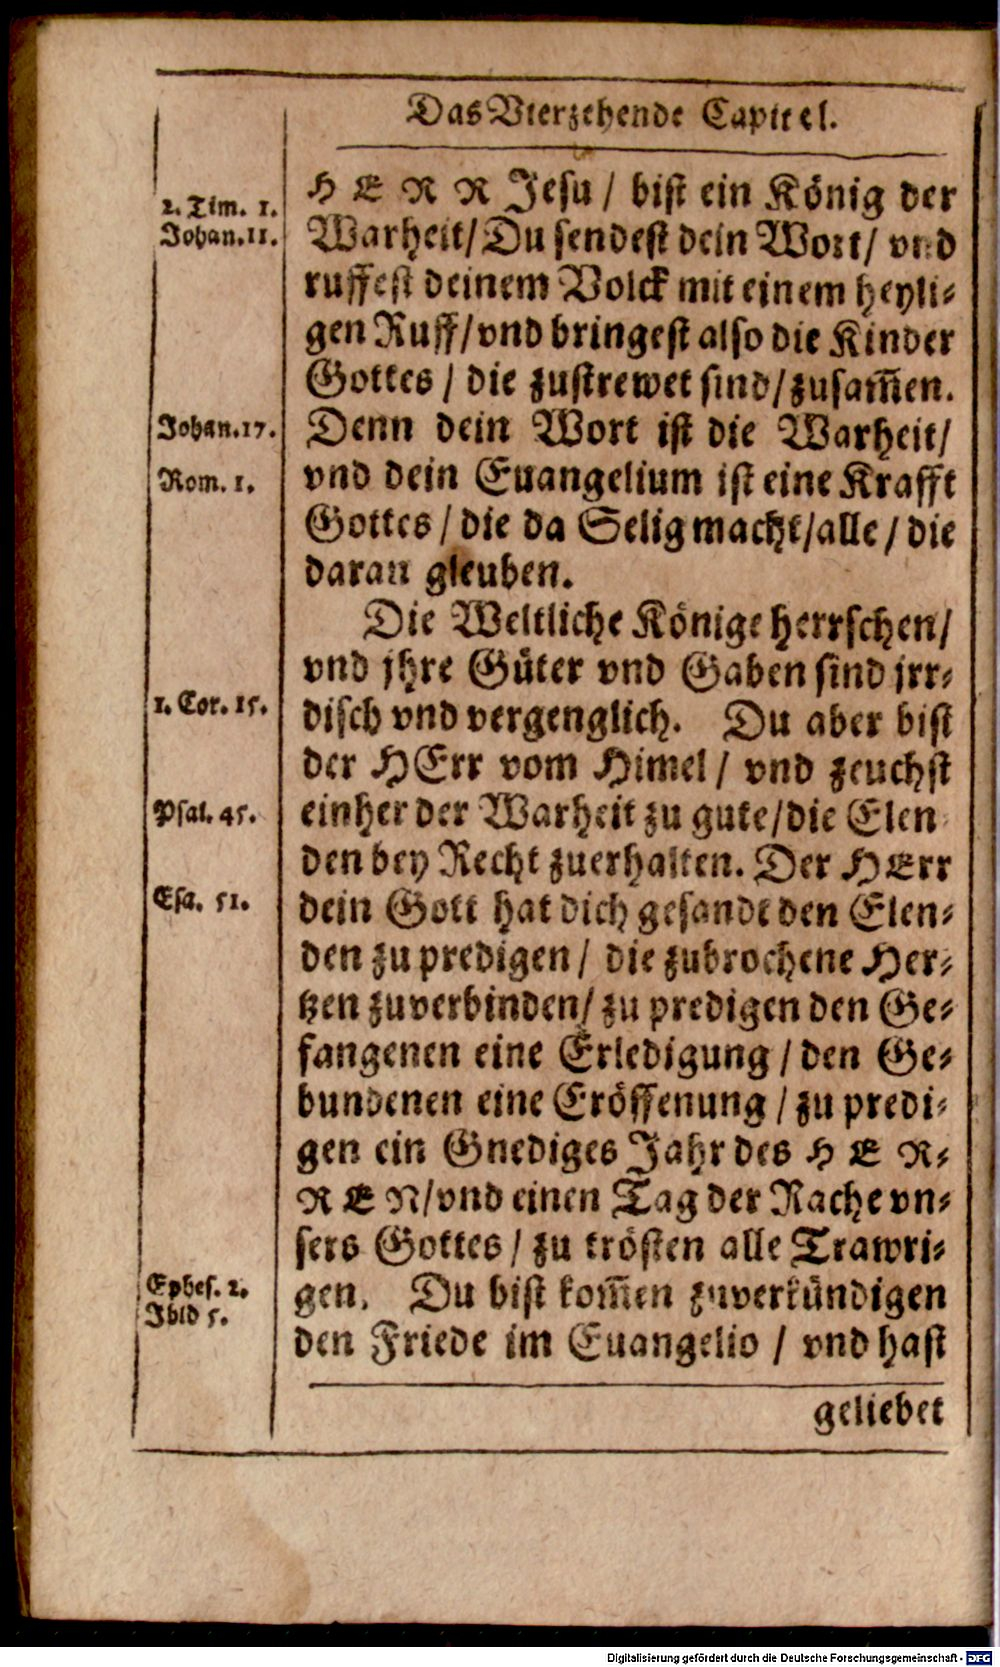 Das Vierzehende Capitel.
2. Tim. 1.
Johan. 11.
Johan. 17.
Rom. 1.
1. Cor. 15.
Psal. 45.
Esa. 51.
Ephes. 2.
Ibid 5.
HERR Jesu / bist ein König der
Warheit / Du sendest dein Wort / vnd
ruffest deinem Volck mit einem heyli-
gen Ruff / vnd bringest also die Kinder
Gottes / die zustrewet sind / zusam̃en.
Denn dein Wort ist die Warheit /
vnd dein Euangelium ist eine Krafft
Gottes / die da Selig macht / alle / die
daran gleuben.
Die Weltliche Könige herrschen /
vnd jhre Güter vnd Gaben sind jrr-
disch vnd vergenglich. Du aber bist
der HErr vom Himel / vnd zeuchst
einher der Warheit zu gute / die Elen
den bey Recht zuerhalten. Der HErr
dein Gott hat dich gesandt den Elen-
den zu predigen / die zubrochene Her-
tzen zuverbinden / zu predigen den Ge-
fangenen eine Erledigung / den Ge-
bundenen eine Eröffenung / zu predi-
gen ein Gnediges Jahr des HER-
REN / vnd einen Tag der Rache vn-
sers Gottes / zu trösten alle Trawri-
gen. Du bist kom̃en zuverkündigen
den Friede im Euangelio / vnd hast
geliebet
Digitalisierung gefördert durch die Deutsche Forschungsgemeinschaft - DFG